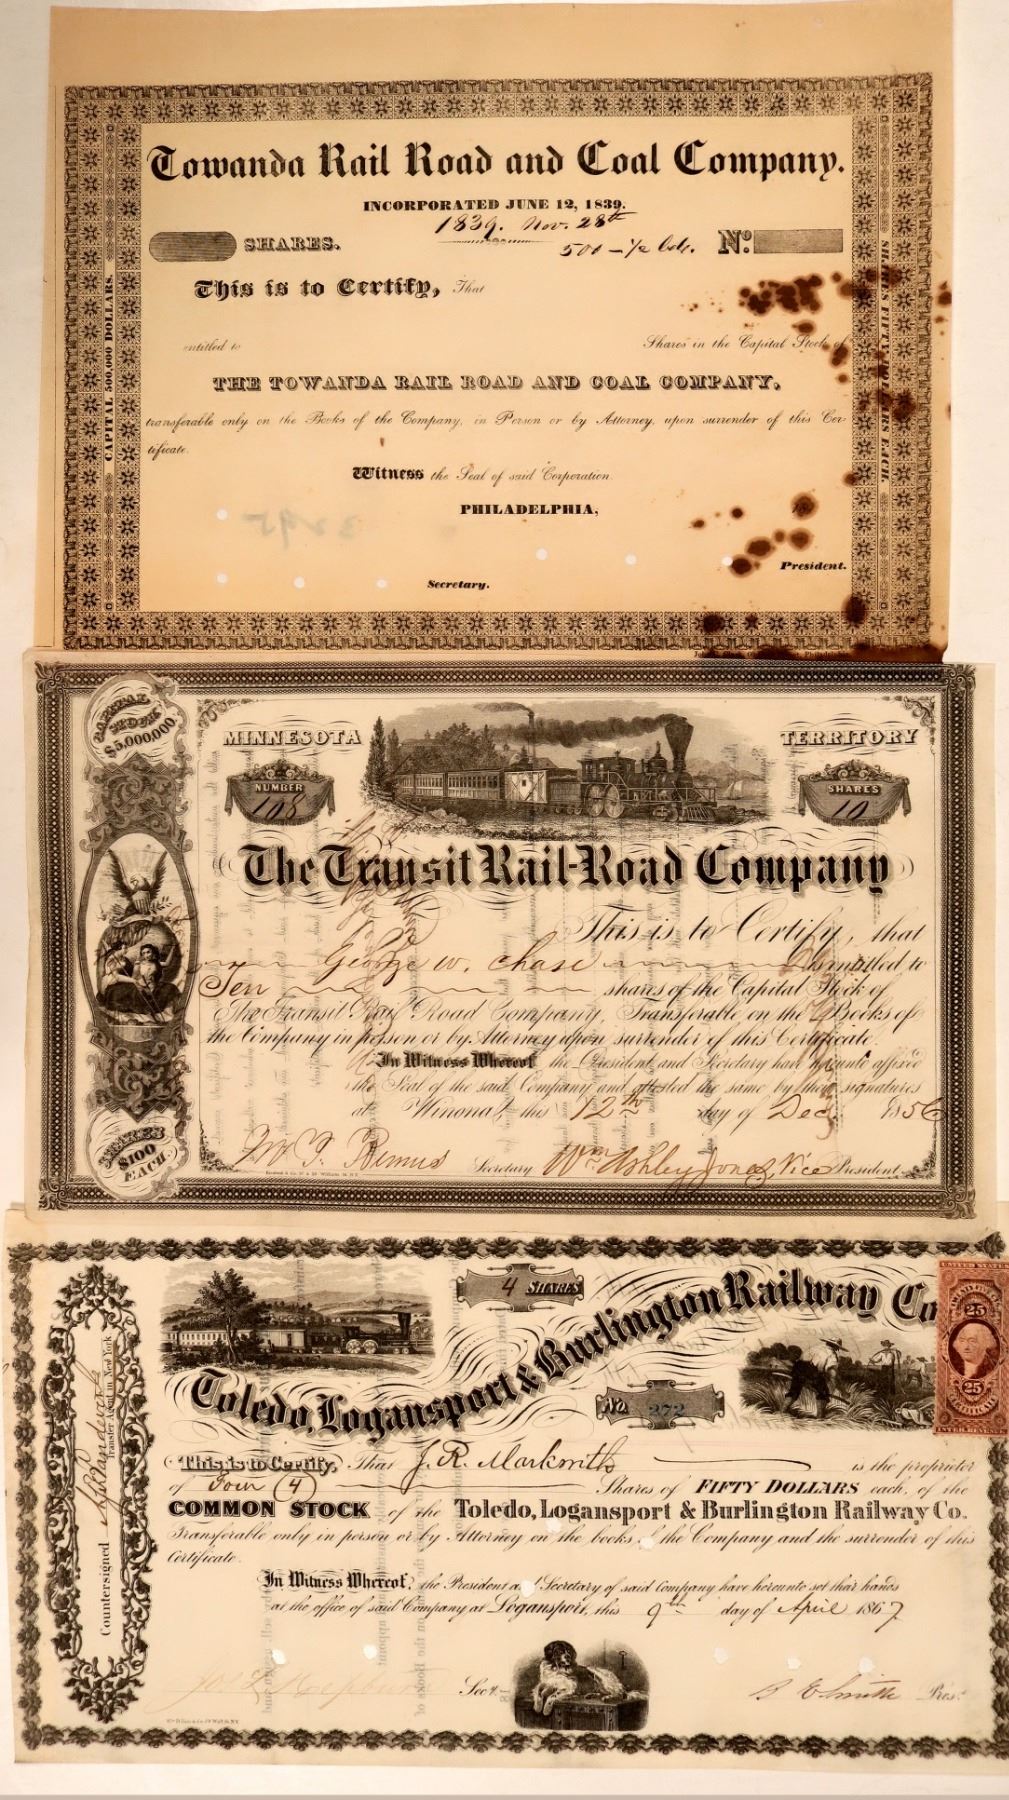 Towanda Rail Road and Coal Company.
INCORPORATED JUNE 12, 1839.
1839. Nov. 28th
SHARES.
500 - 1/2 bds.
No.
This is to Certify, That
entitled to
Shares in the Capital Stock of
THE TOWANDA RAIL ROAD AND COAL COMPANY,
transferable only on the Books of the Company, in Person or by Attorney, upon surrender of this Cer-
tificate.
Witness the Seal of said Corporation.
PHILADELPHIA,
18
President.
Secretary.
CAPITAL 500,000 DOLLARS.
SHARES FIFTY DOLLARS EACH.
3295
CAPITAL
STOCK
$5,000,000.
MINNESOTA
TERRITORY
NUMBER
108
SHARES
10
The Transit Rail-Road Company
This is to Certify, that
George W. Chase is entitled to
Ten shares of the Capital Stock of
The Transit Rail Road Company, Transferable on the Books of
the Company in person or by Attorney upon surrender of this Certificate.
In Witness Whereof the President and Secretary have hereunto affixed
the Seal of the said Company and attested the same by their signatures
at Winona, this 12th day of Dec 1856
Secretary Wm Ashley Jones, Vice President.
SHARES
$100
EACH.
4 SHARES
Toledo, Logansport & Burlington Railway Co
No. 272
UNITED STATES
25
25
INTER. REVENUE
This is to Certify, That J. R. Marksmith is the proprietor
of Four (4) Shares of FIFTY DOLLARS each, of the
COMMON STOCK of the Toledo, Logansport & Burlington Railway Co.
Transferable only in person or by Attorney on the books of the Company and the surrender of this
Certificate.
In Witness Whereof, the President and Secretary of said Company have hereunto set their hands
at the office of said Company at Logansport, this 9th day of April 1867.
Jos. L. Hepburn Secy.
B E Smith Pres.
Countersigned
Transfer Agent in New York